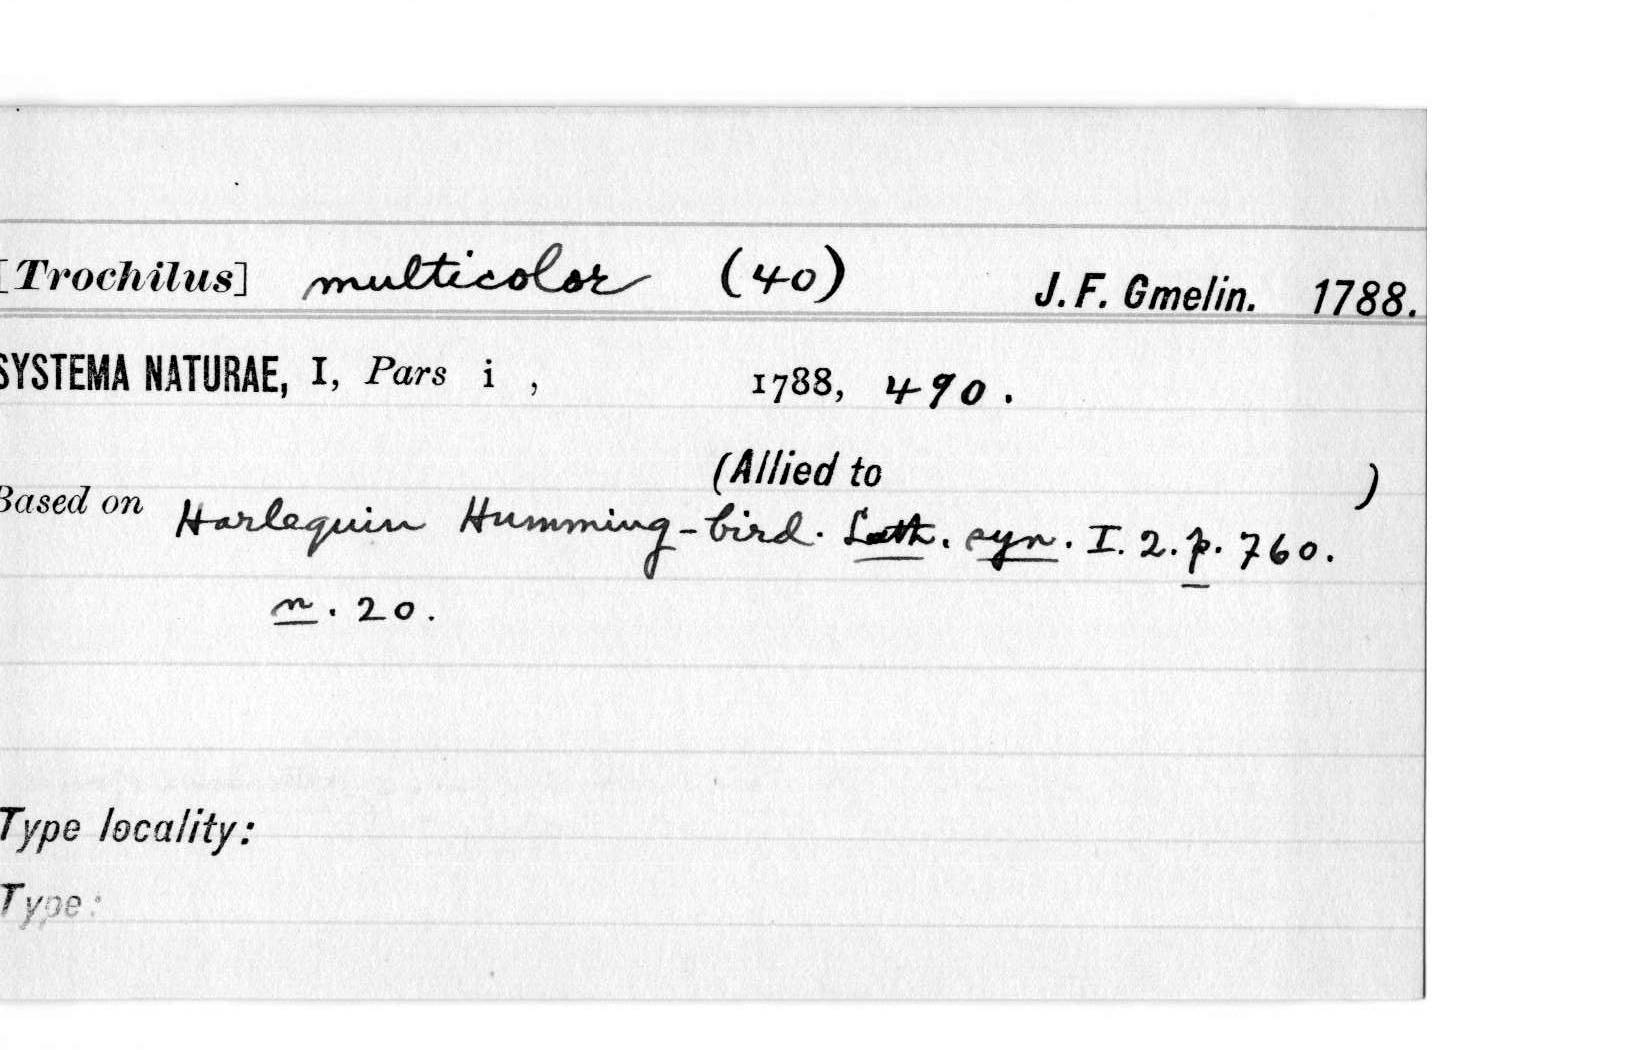 [Trochilus] multicolor (40) J. F. Gmelin. 1788.
SYSTEMA NATURAE, I, Pars i , 1788, 490.
(Allied to )
Based on Harlequin Humming-bird. Lath. syn. I. 2. p. 760.
n. 20.
Type locality:
Type: